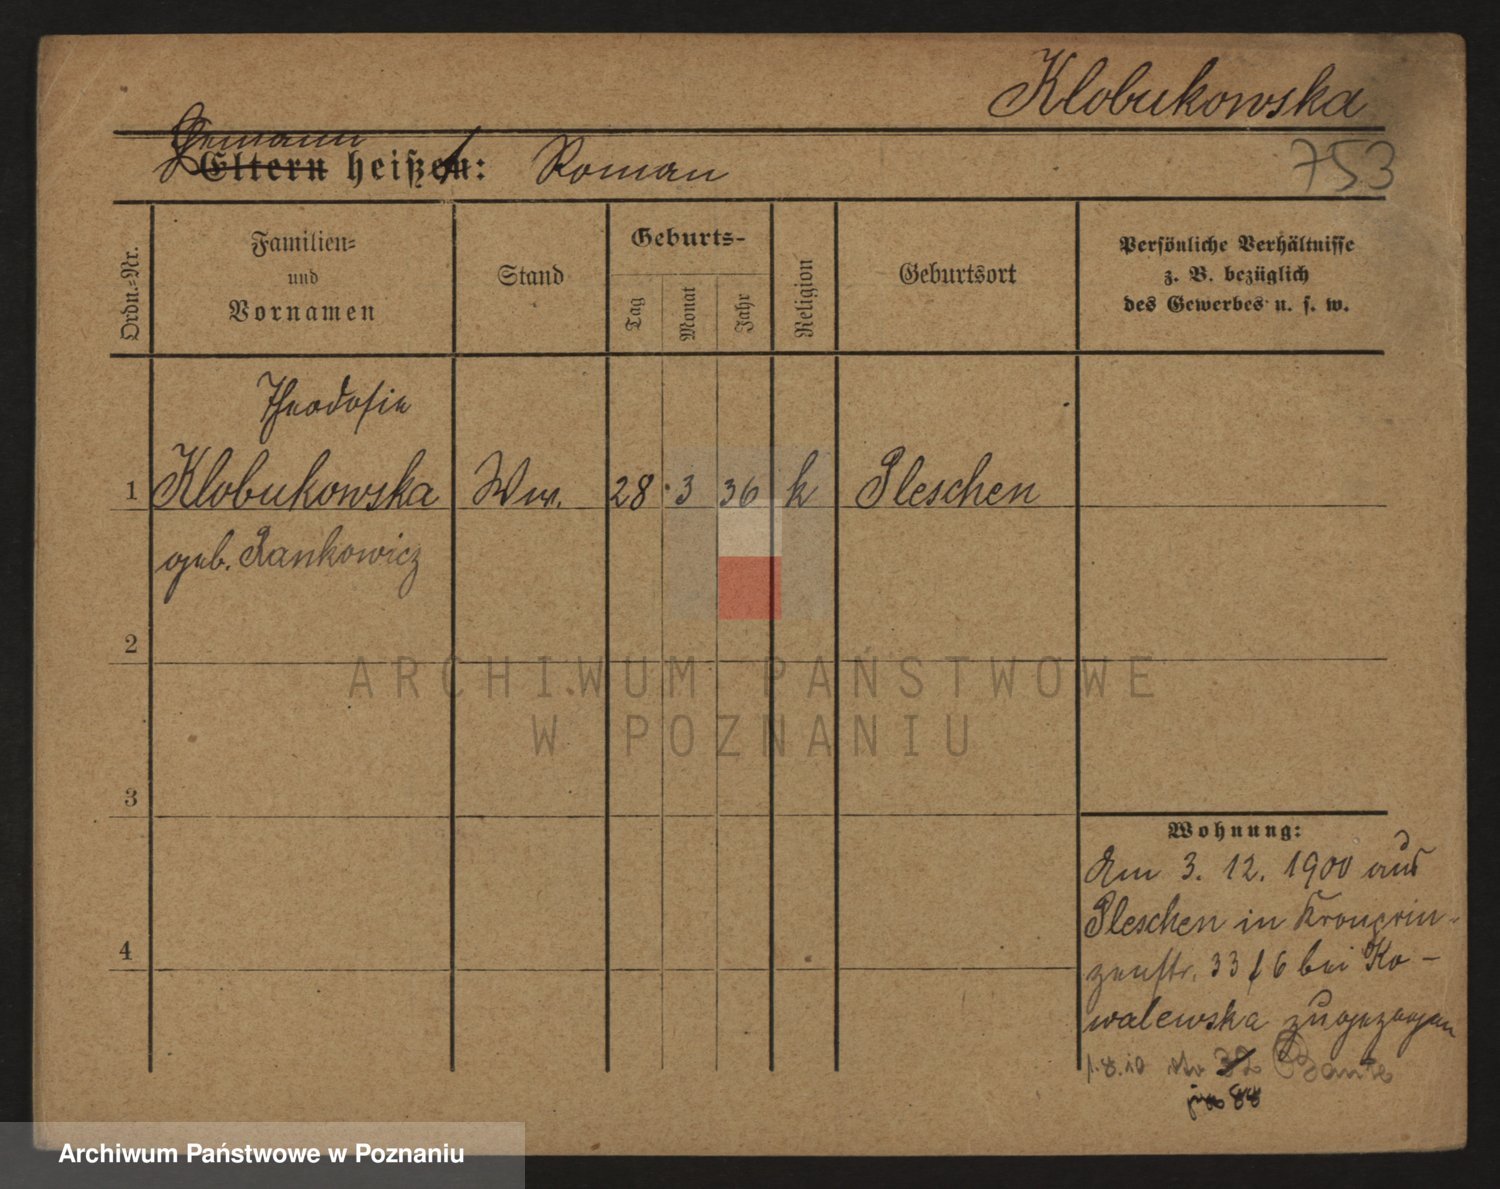 Klobukowska
Ehemann
Eltern heißen: Roman
753
Ordn.-Nr.
Familien-
und
Vornamen
Stand
Geburts-
Tag
Monat
Jahr
Religion
Geburtsort
Persönliche Verhältnisse
z. B. bezüglich
des Gewerbes u. s. w.
Theodosie
1 Klobukowska Ww. 28. 3 36 k Pleschen
geb. Jankowicz
2
ARCHIWUM PAŃSTWOWE
W POZNANIU
3
Wohnung:
Am 3. 12. 1900 aus
Pleschen in Kronprin-
zenstr. 33 f 6 bei Ko-
walewska zugezogen
1.8.10 32
88
4
Archiwum Państwowe w Poznaniu